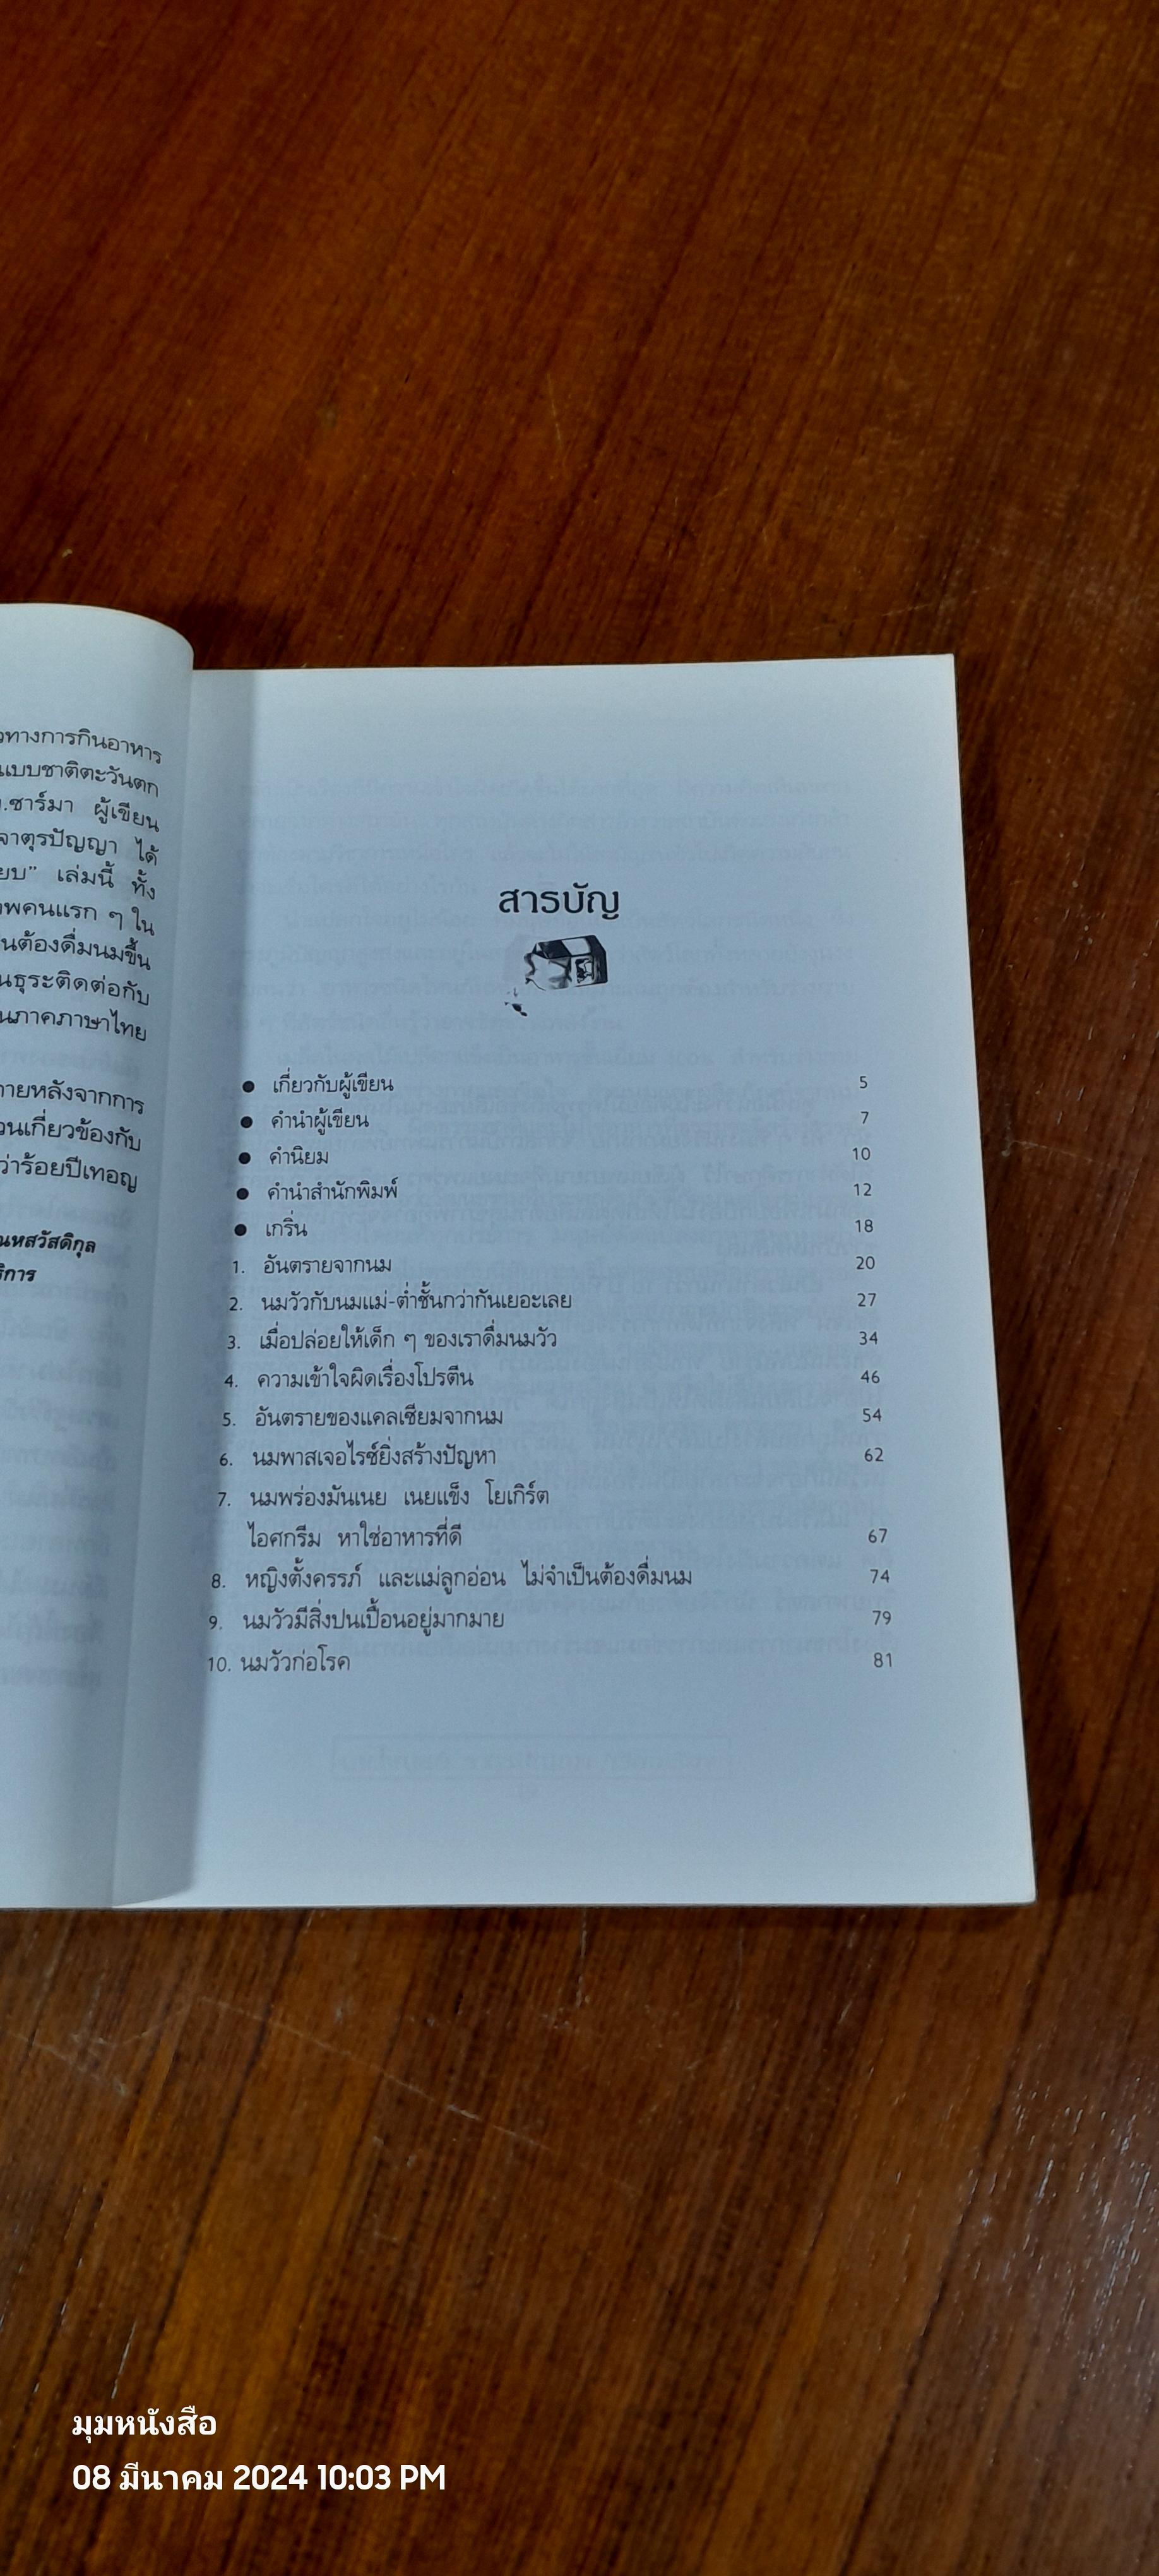 ทางการกินอาหาร
แบบชาติตะวันตก
ชาร์มา ผู้เขียน
จาตุรปัญญา ได้
เล่มนี้ ทั้ง
พคนแรก ๆ ใน
นต้องดื่มนมขึ้น
นธุระติดต่อกับ
นภาคภาษาไทย
ายหลังจากการ
วนเกี่ยวข้องกับ
ว่าร้อยปีเทอญ
ณหสวัสดิกุล
สารบัญ
● เกี่ยวกับผู้เขียน 5
● คำนำผู้เขียน 7
● คำนิยม 10
● คำนำสำนักพิมพ์ 12
● เกริ่น 18
1. อันตรายจากนม 20
2. นมวัวกับนมแม่-ต่ำชั้นกว่ากันเยอะเลย 27
3. เมื่อปล่อยให้เด็ก ๆ ของเราดื่มนมวัว 34
4. ความเข้าใจผิดเรื่องโปรตีน 46
5. อันตรายของแคลเซียมจากนม 54
6. นมพาสเจอไรซ์ยิ่งสร้างปัญหา 62
7. นมพร่องมันเนย เนยแข็ง โยเกิร์ต
ไอศกรีม หาใช่อาหารที่ดี 67
8. หญิงตั้งครรภ์ และแม่ลูกอ่อน ไม่จำเป็นต้องดื่มนม 74
9. นมวัวมีสิ่งปนเปื้อนอยู่มากมาย 79
10. นมวัวก่อโรค 81
มุมหนังสือ
08 มีนาคม 2024 10:03 PM